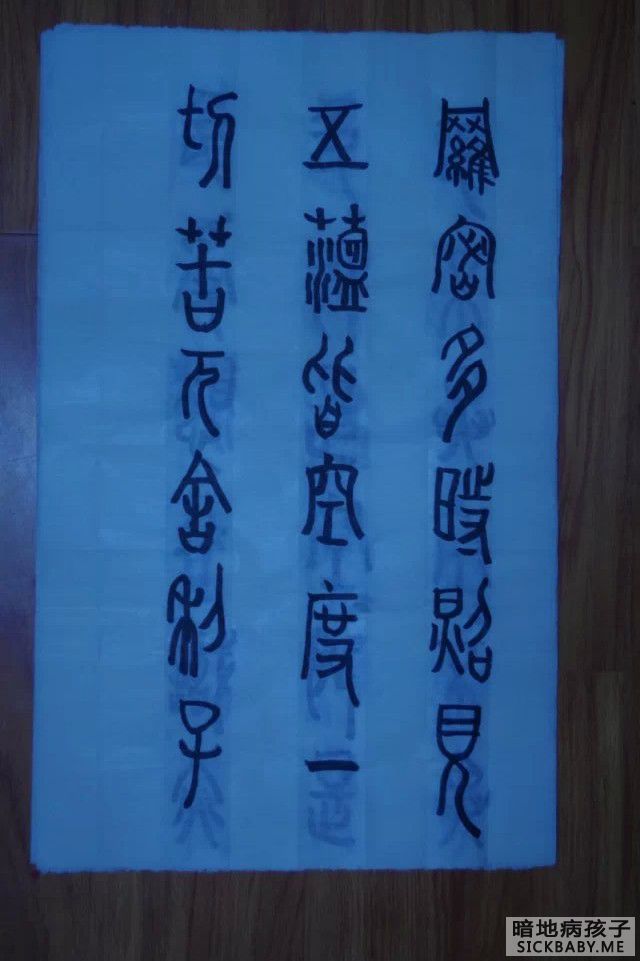 羅密多時照見
五蘊皆空度一
切苦厄舍利子
暗地病孩子
SICKBABY.ME